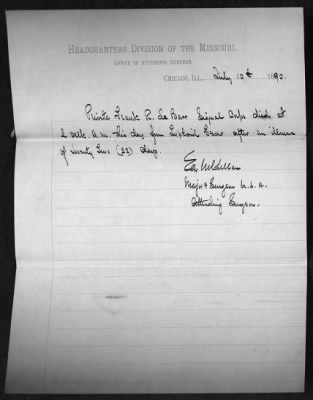 HEADQUARTERS DIVISION OF THE MISSOURI,
OFFICE OF ATTENDING SURGEON,
CHICAGO, ILL., July 10th 1890.
Private Frank R. De Bass Signal Corps died at
2 o'clk. a.m. this day from Typhoid Fever after an illness
of twenty two (22) days.
Major & Surgeon U.S.A.
Attending Surgeon.